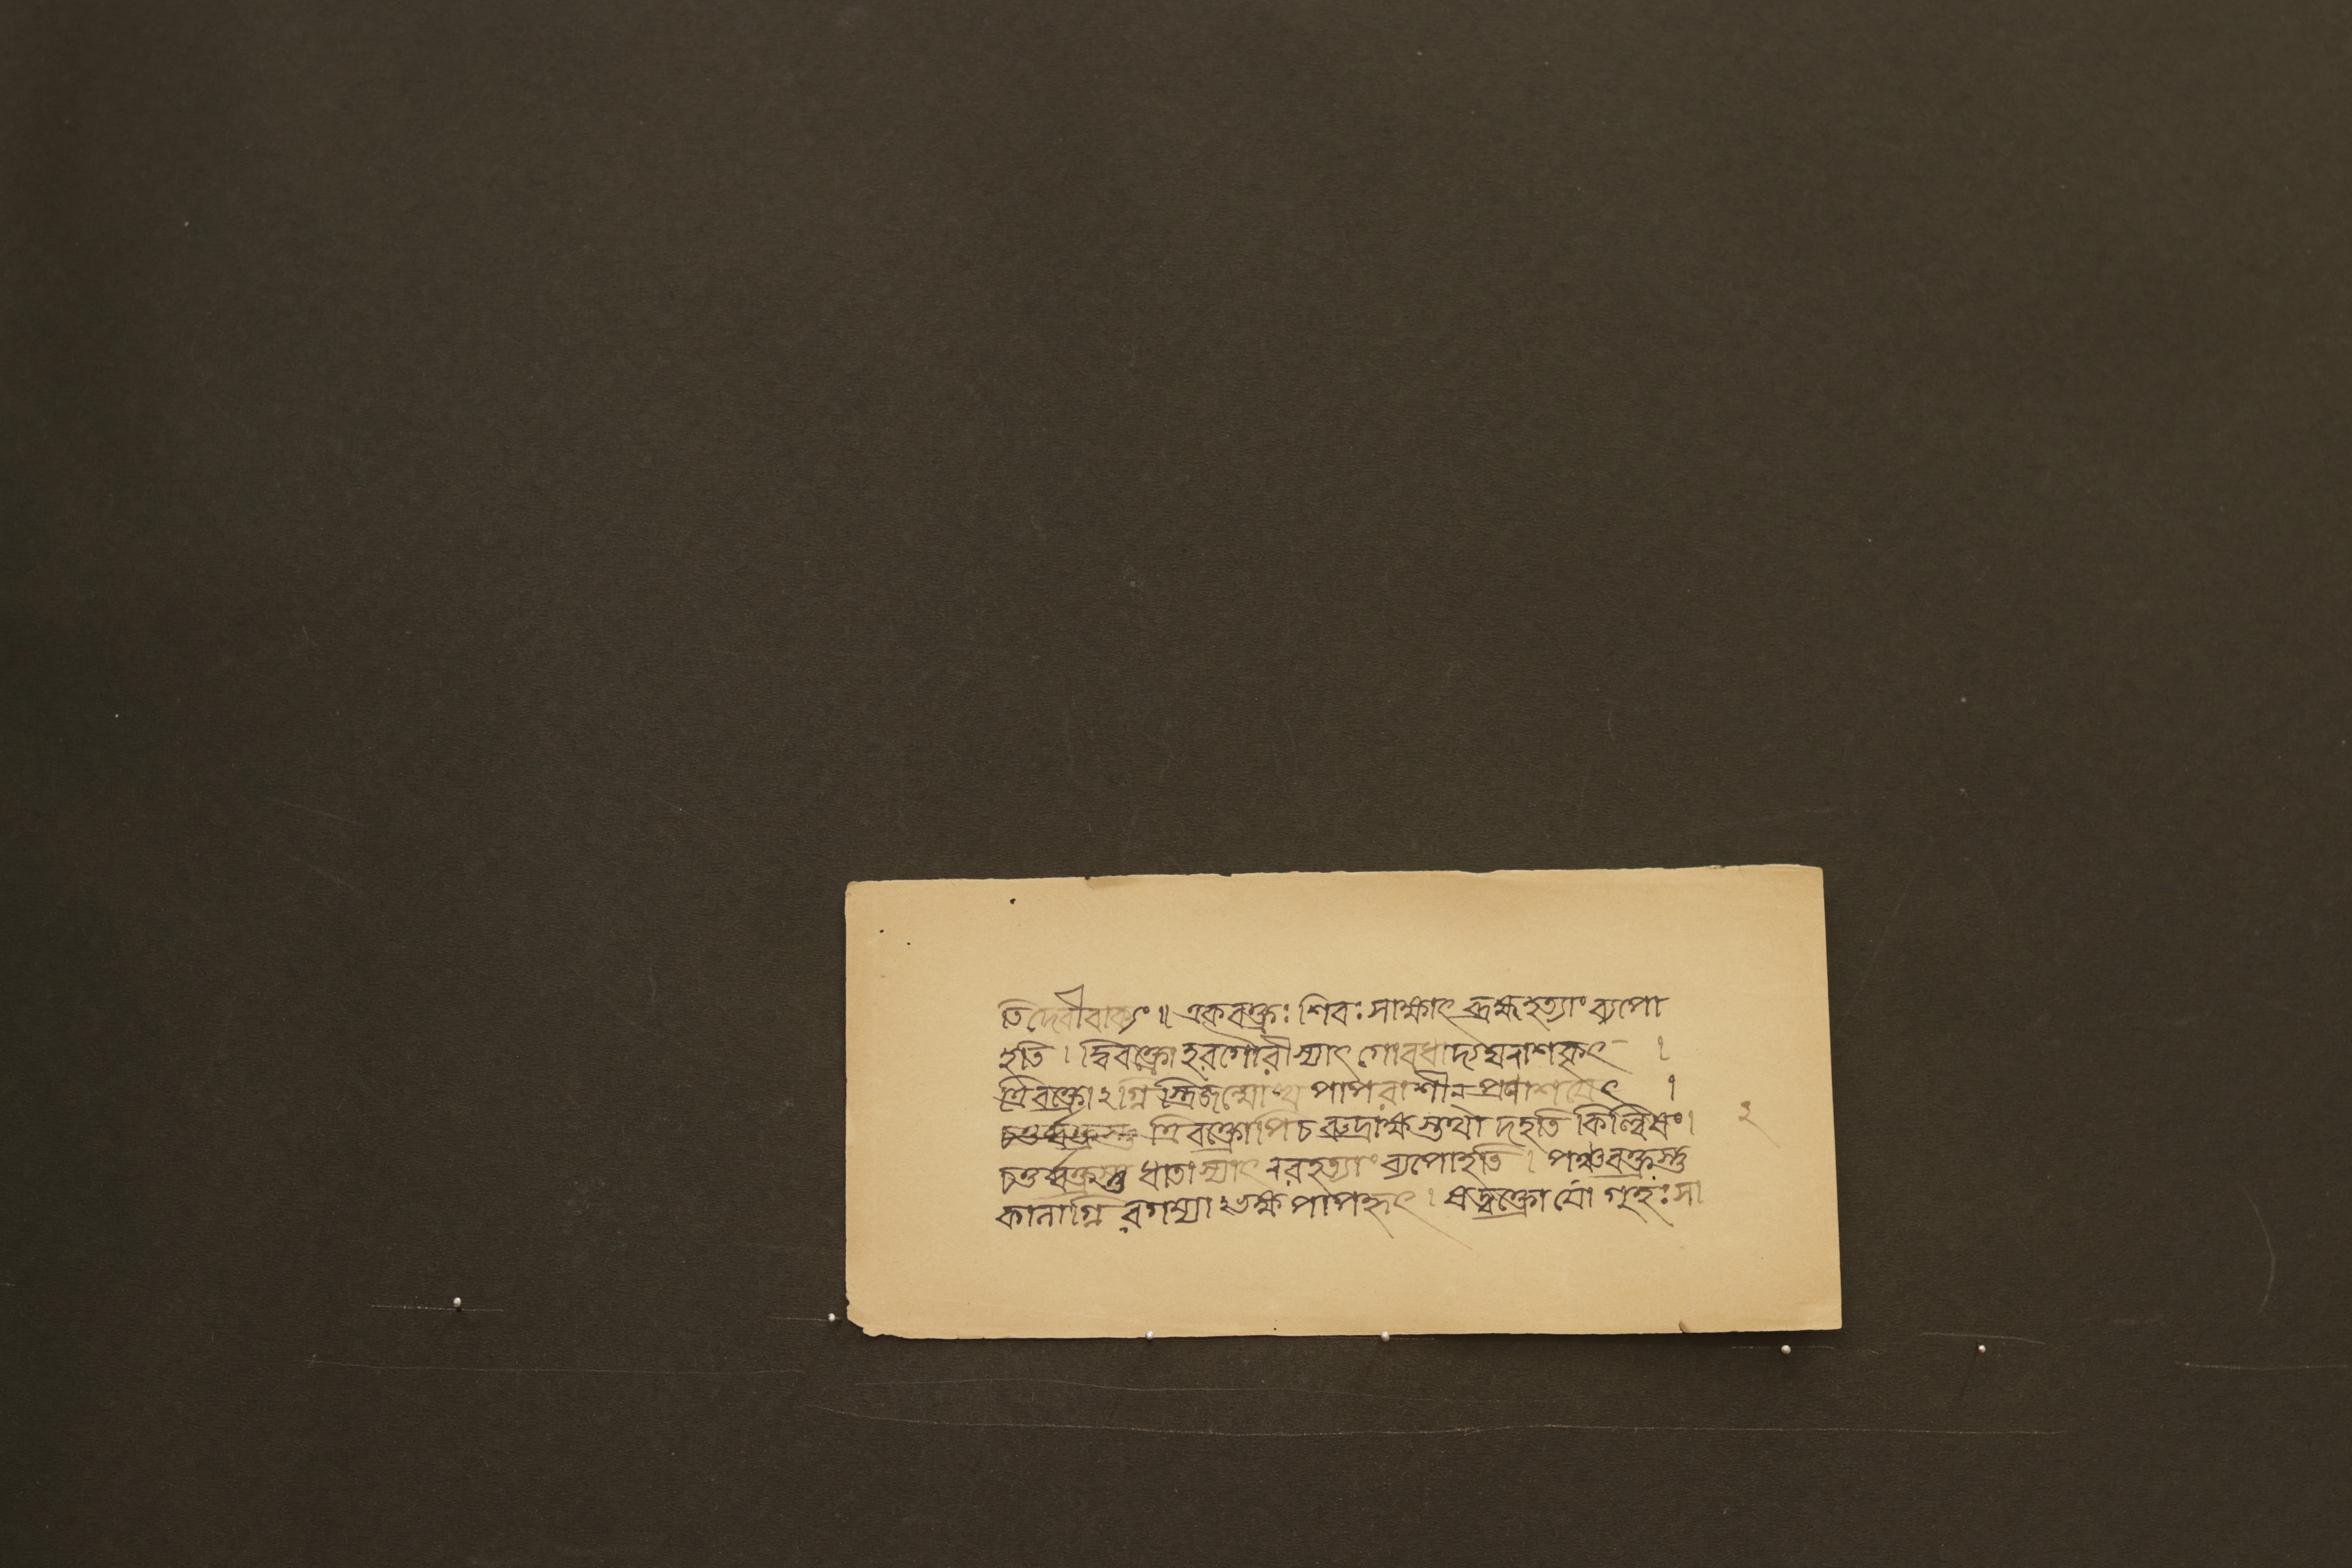 তিদেবীবাক্যং॥ একবক্ত্রঃ শিবঃ সাক্ষাৎ ব্রহ্মহত্যাং ব্যপো
হতি। দ্বিবক্ত্রো হরগৌরীস্যাৎ গোবধাদ্যঘনাশকৃৎ।
ত্রিবক্ত্রোঽগ্নিস্ত্রিজন্মোত্থ পাপরাশীন প্রণাশয়েৎ।
ত্রিবক্ত্রোপিচ রুদ্রাক্ষস্তথা দহতি কিল্বিষং। ২
চতুর্ব্বক্ত্রস্তু ধাতাস্যাৎ নরহত্যাং ব্যপোহতি। পঞ্চবক্ত্রস্তু
কালাগ্নি রগম্যাঽভক্ষ পাপহৃৎ। ষড্বক্ত্রো গুহঃ সা